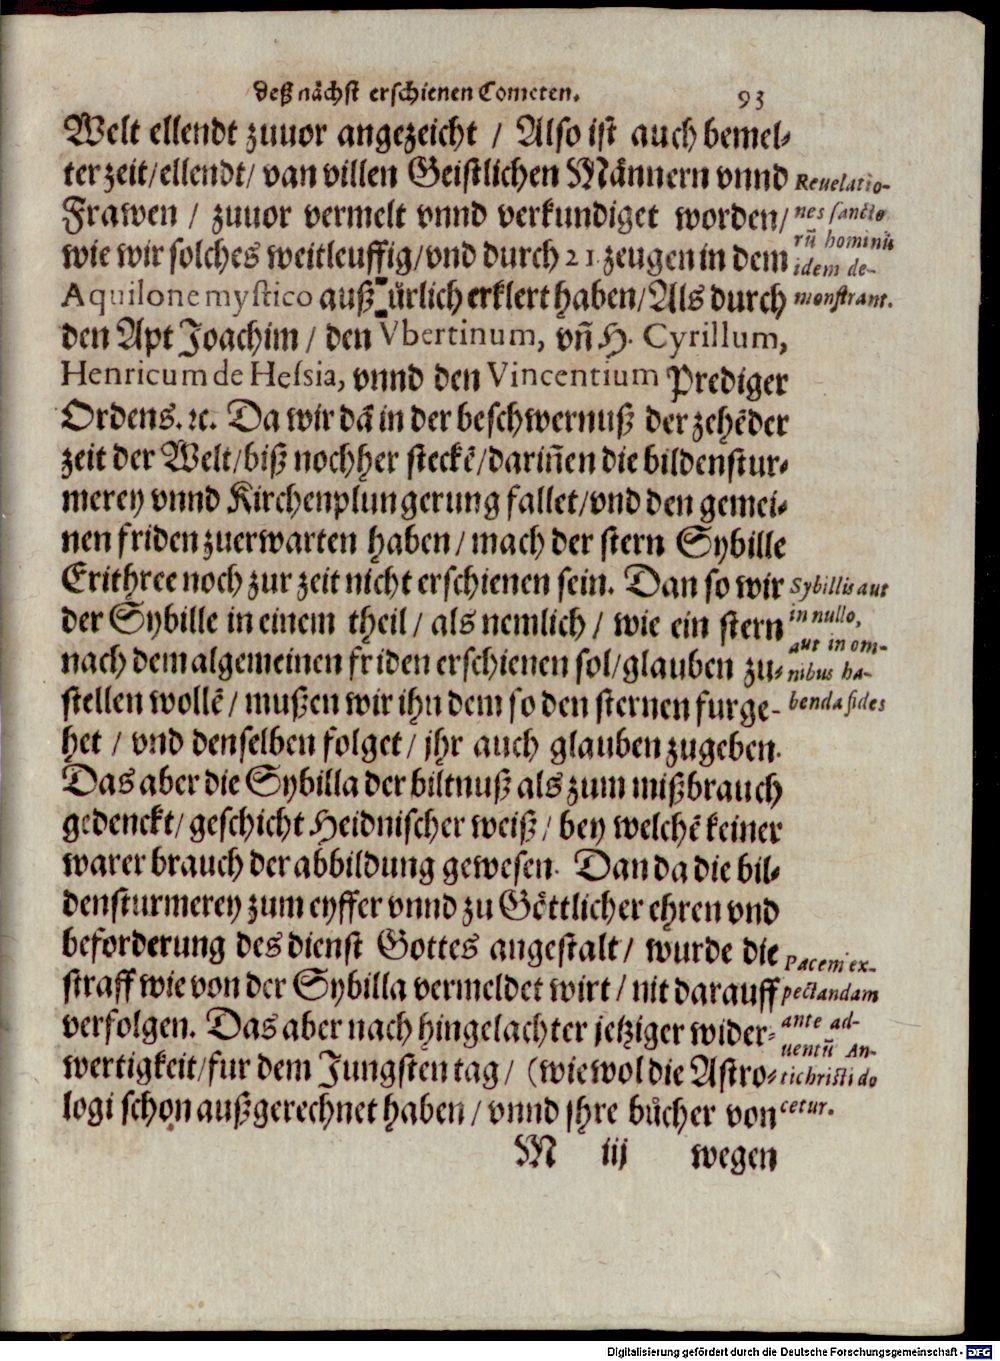 deß nächst erschienen Cometen. 93
Welt ellendt zuuor angezeicht / Also ist auch bemel-
ter zeit/ellendt/ van villen Geistlichen Männern vnnd
Frawen / zuuor vermelt vnnd verkundiget worden/
wie wir solches weitleuffig/vnd durch 21 zeugen in dem
Aquilone mystico auß ürlich erklert haben/Als durch
den Apt Joachim / den Vbertinum, vñ H. Cyrillum,
Henricum de Hessia, vnnd den Vincentium Prediger
Ordens. ꝛc. Da wir dã in der beschwernuß der zehẽder
zeit der Welt/biß nochher steckẽ/dariñen die bildenstur-
merey vnnd Kirchenplungerung fallet/vnd den gemei-
nen friden zuerwarten haben / mach der stern Sybille
Erithree noch zur zeit nicht erschienen sein. Dan so wir
der Sybille in einem theil / als nemlich / wie ein stern
nach dem algemeinen friden erschienen sol/glauben zu-
stellen wollẽ / mußen wir ihn dem so den sternen furge-
het / vnd denselben folget / jhr auch glauben zugeben.
Das aber die Sybilla der biltnuß als zum mißbrauch
gedenckt/ geschicht Heidnischer weiß / bey welchẽ keiner
warer brauch der abbildung gewesen. Dan da die bil-
densturmerey zum eyffer vnnd zu Göttlicher ehren vnd
beforderung des dienst Gottes angestalt / wurde die
straff wie von der Sybilla vermeldet wirt / nit darauff
verfolgen. Das aber nach hingelachter jetziger wider-
wertigkeit/fur dem Jungsten tag / (wiewol die Astro-
logi schon außgerechnet haben / vnnd jhre bücher von
M iij wegen
Reuelatio-
nes sancto
rũ hominũ
idem de-
monstrant.
Sybillis aut
in nullo,
aut in om-
nibus ha-
benda fides
Pacem ex-
pectandam
ante ad-
uentũ An-
tichristi do
cetur.
Digitalisierung gefördert durch die Deutsche Forschungsgemeinschaft - DFG